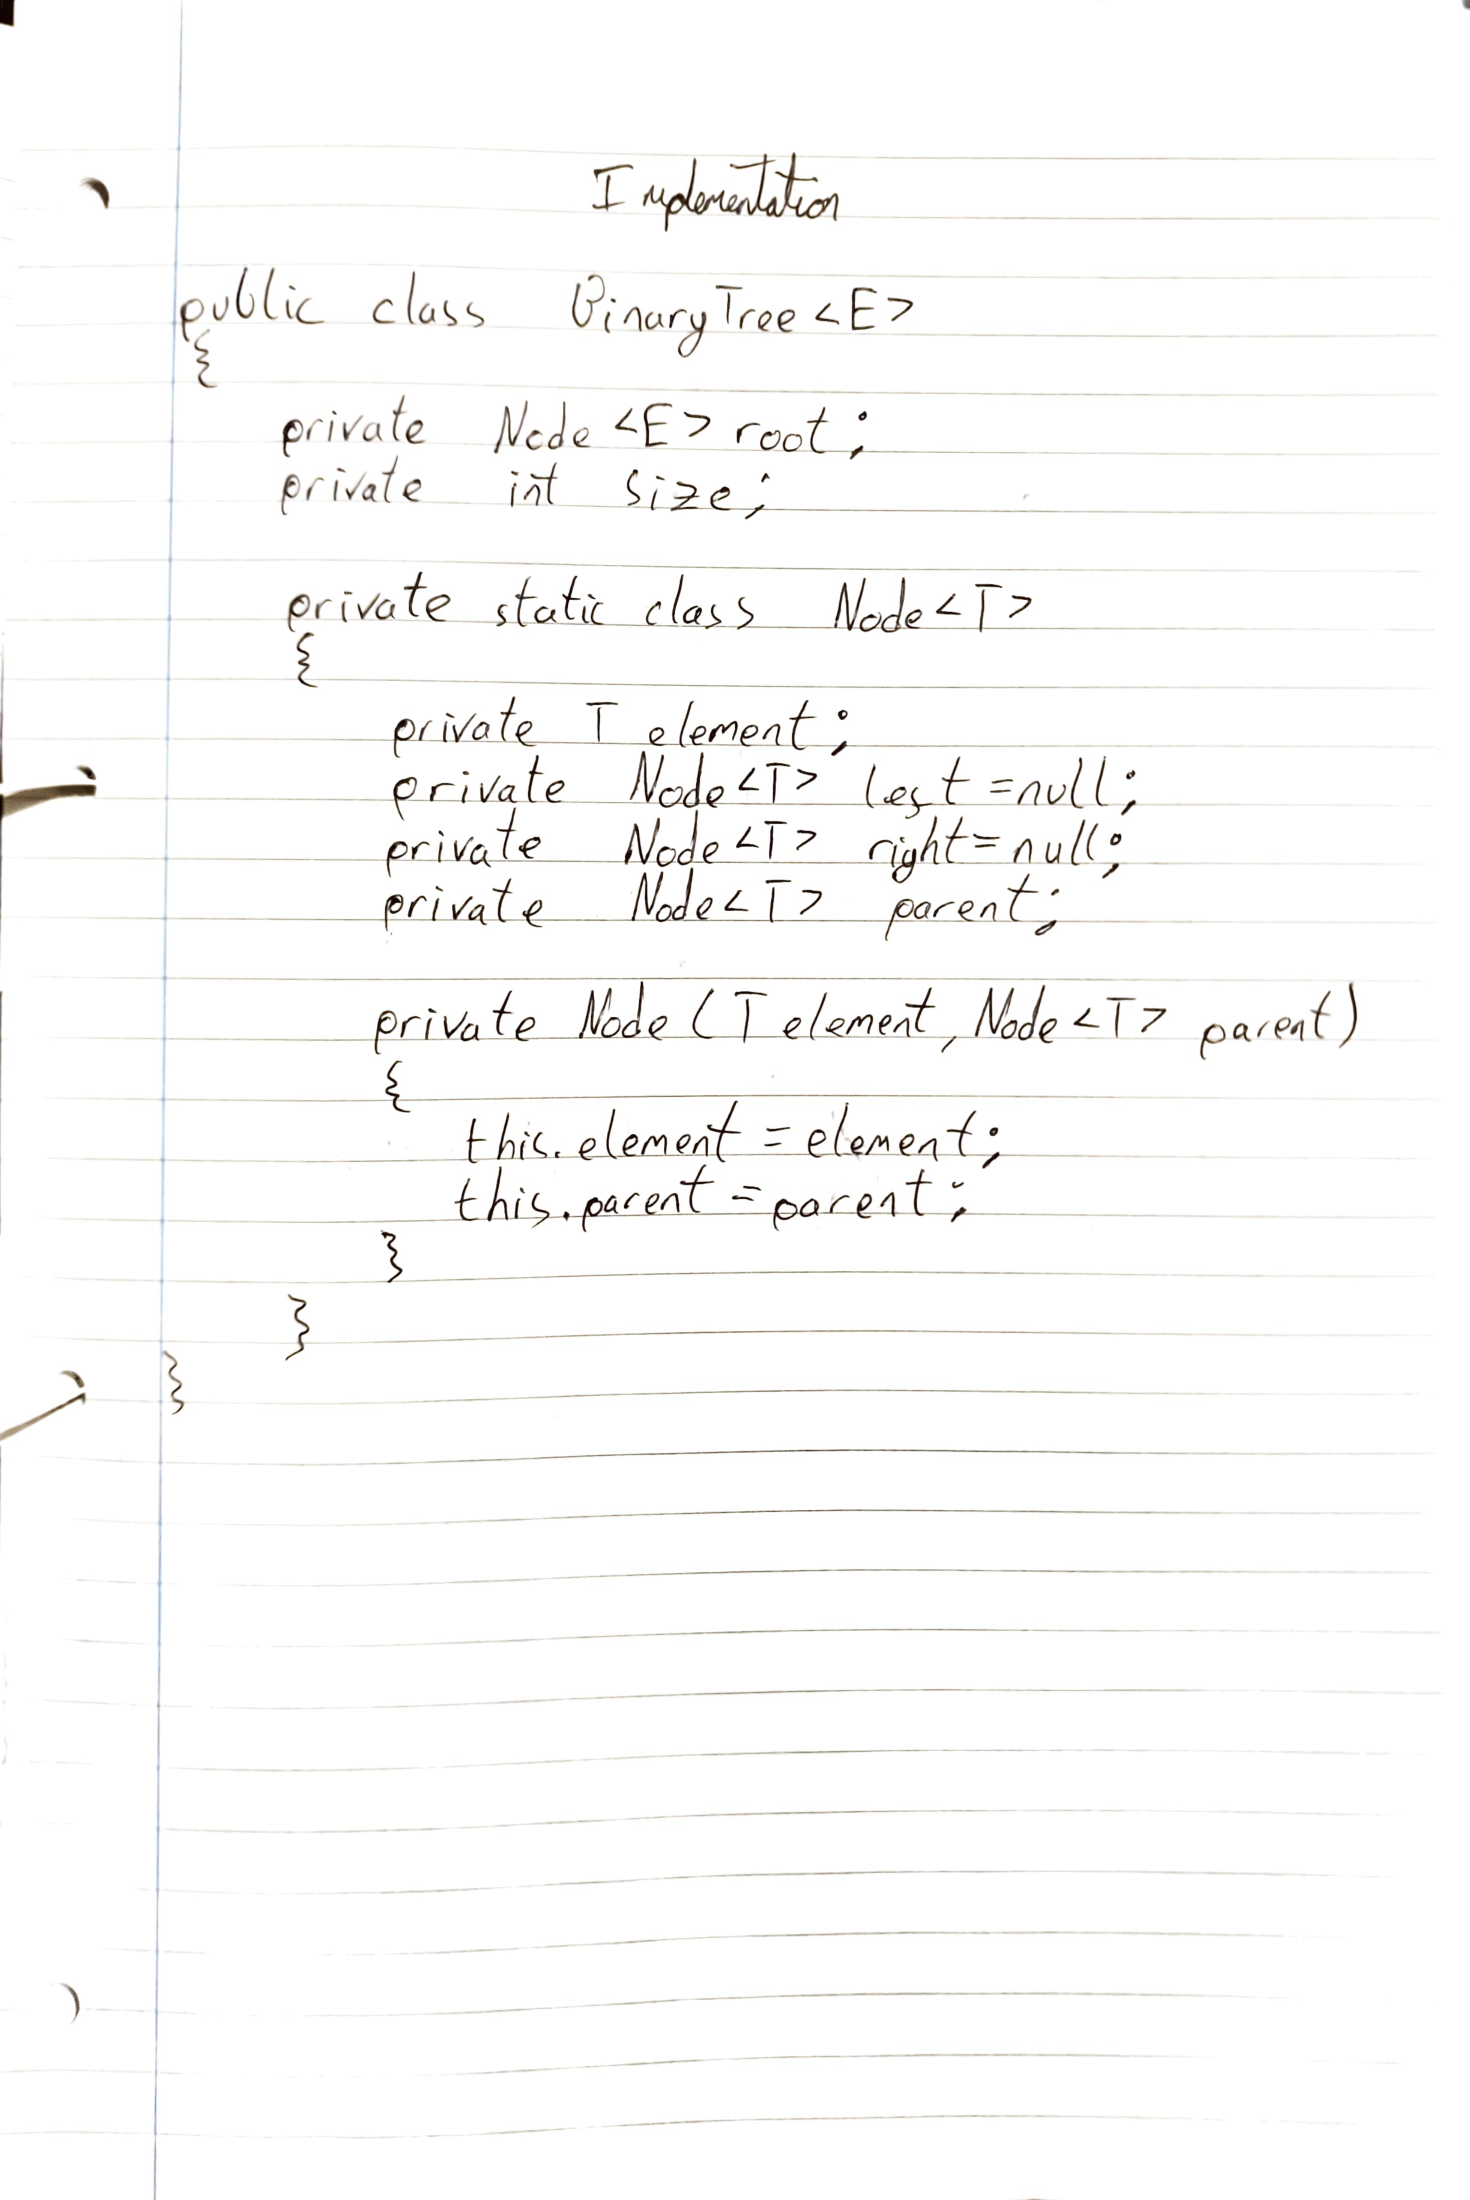 Implementation
public class BinaryTree <E>
{
private Node <E> root;
private int size;
private static class Node <T>
{
private T element;
private Node <T> left = null;
private Node <T> right = null;
private Node <T> parent;
private Node (T element, Node <T> parent)
{
this.element = element;
this.parent = parent;
}
}
}